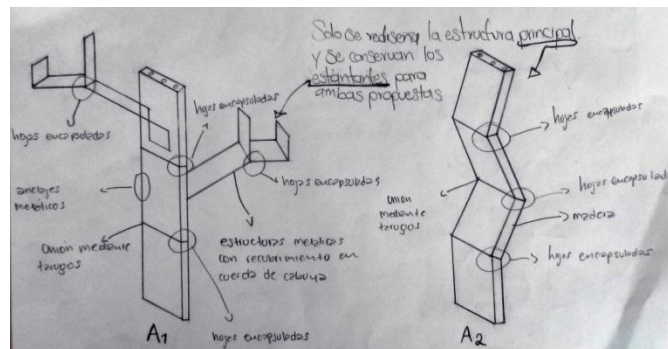 Solo se rediseña la estructura principal
y se conservan los
estantes para
ambas propuestas
hojas encapsuladas
hojas encapsuladas
anclajes
metálicos
hojas encapsuladas
Unión mediante
tarugos
estructuras metalicas
con recubrimiento en
cuerda de cabuya
hojas encapsuladas
A1
hojes encapsuladas
hojas encapsulad
union
mediante
tarugos
madera
hojas encapsuladas
A2